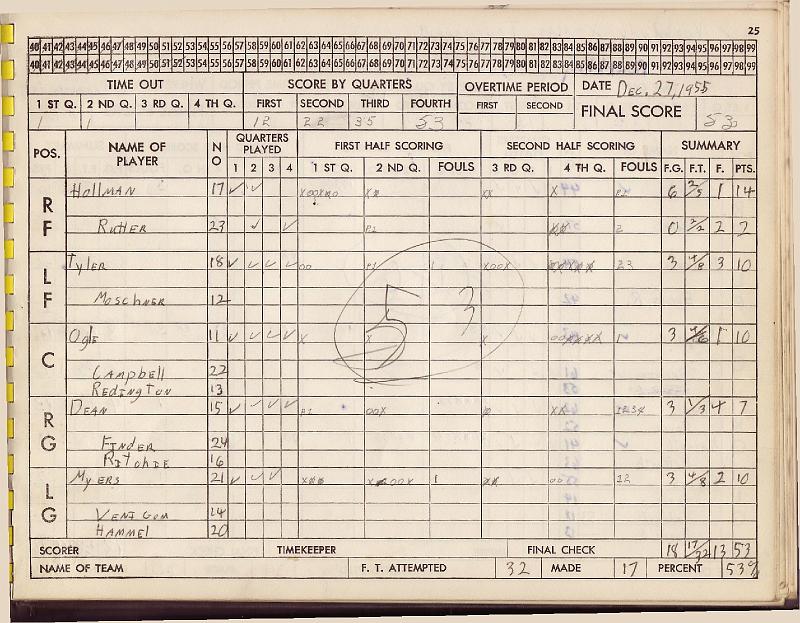 25
40 41 42 43 44 45 46 47 48 49 50 51 52 53 54 55 56 57 58 59 60 61 62 63 64 65 66 67 68 69 70 71 72 73 74 75 76 77 78 79 80 81 82 83 84 85 86 87 88 89 90 91 92 93 94 95 96 97 98 99
40 41 42 43 44 45 46 47 48 49 50 51 52 53 54 55 56 57 58 59 60 61 62 63 64 65 66 67 68 69 70 71 72 73 74 75 76 77 78 79 80 81 82 83 84 85 86 87 88 89 90 91 92 93 94 95 96 97 98 99
TIME OUT SCORE BY QUARTERS OVERTIME PERIOD DATE Dec. 27, 1955
1 ST Q. 2 ND Q. 3 RD Q. 4 TH Q. FIRST SECOND THIRD FOURTH FIRST SECOND FINAL SCORE 53
1 1 12 22 35 53
POS. NAME OF PLAYER NO QUARTERS PLAYED FIRST HALF SCORING SECOND HALF SCORING SUMMARY
1 2 3 4 1 ST Q. 2 ND Q. FOULS 3 RD Q. 4 TH Q. FOULS F.G. F.T. F. PTS.
RF Hollman 17 6 2/5 1 14
Rutter 23 2 0 2/2 2 2
LF Tyler 18 1 23 3 4/8 3 10
Moschner 12
53
C Ogle 11 1 3 4/6 1 10
Campbell 22
Redington 13
RG Dean 15 1234 3 1/3 4 7
Finder 24
Ritchie 16
LG Myers 21 1 12 3 4/8 2 10
Venigom 14
Hammel 20
SCORER TIMEKEEPER FINAL CHECK 18 17/32 13 53
NAME OF TEAM F. T. ATTEMPTED 32 MADE 17 PERCENT 53%